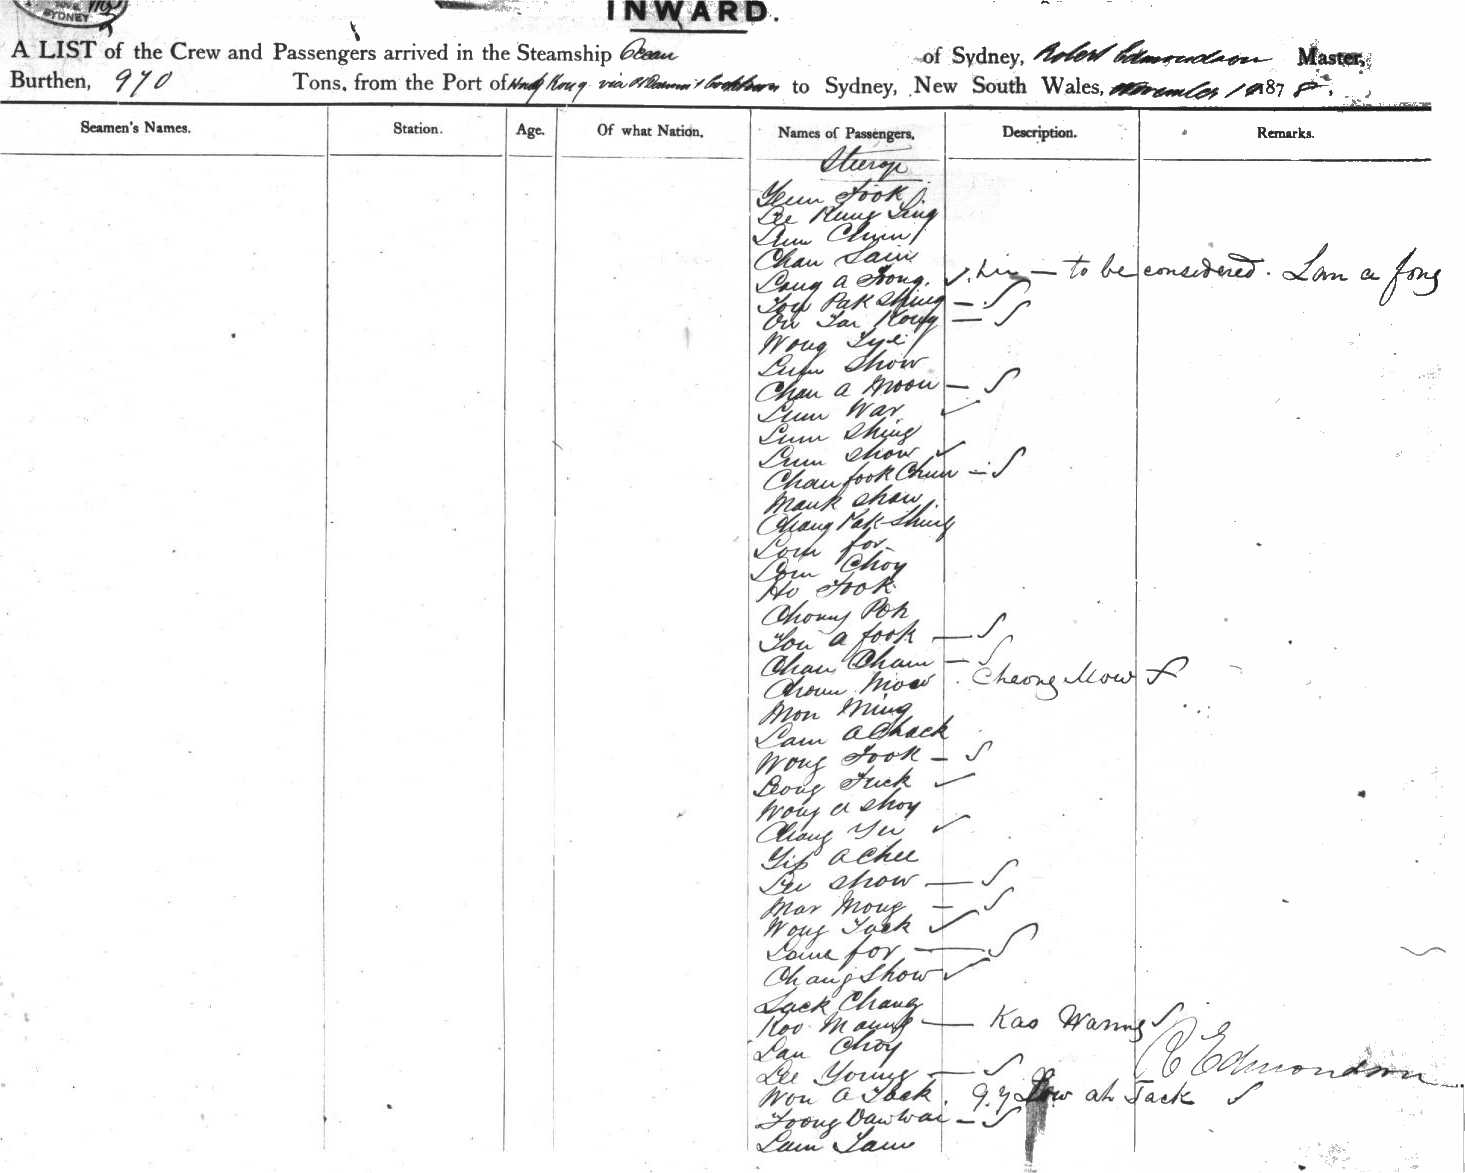 SYDNEY
INWARD.
A LIST of the Crew and Passengers arrived in the Steamship Ocean of Sydney, Robert Edmondson Master,
Burthen, 970 Tons, from the Port of Hong Kong via & to Sydney, New South Wales, November 187 8.
Seamen's Names. Station. Age. Of what Nation. Names of Passengers, Description. Remarks.
Steerage
Yeun Fook
Lee Kung Sing
Lum Chun
Chan Sain
Long a Foong. to be considered. Lam a fong
You Pak Shing
On Tai Kong
Wong Tye
Lum Show
Chan a Moon
Lum War
Lum Shing
Lum Show
Chan fook Chun
Mank Show
Chang Pak Shing
Lom for
Lom Choy
Ho Fook
Chong Poh
You a fook
Chan Cham
Choun Mow Cheong Mow
Mon Ming
Lam a Chack
Wong Fook
Long Fuck
Wong a Shoy
Chang Yee
Yip a Chee
Lee Show
Mar Mong
Wong Tack
Lame for
Chang Show
Luck Chang
Koo Maung Kao Wanng
Lau Choy
R Edmondson
Lee Young
Won A Tack. G.Y Low ah Tack
Foong Daw Wai
Lam Tam